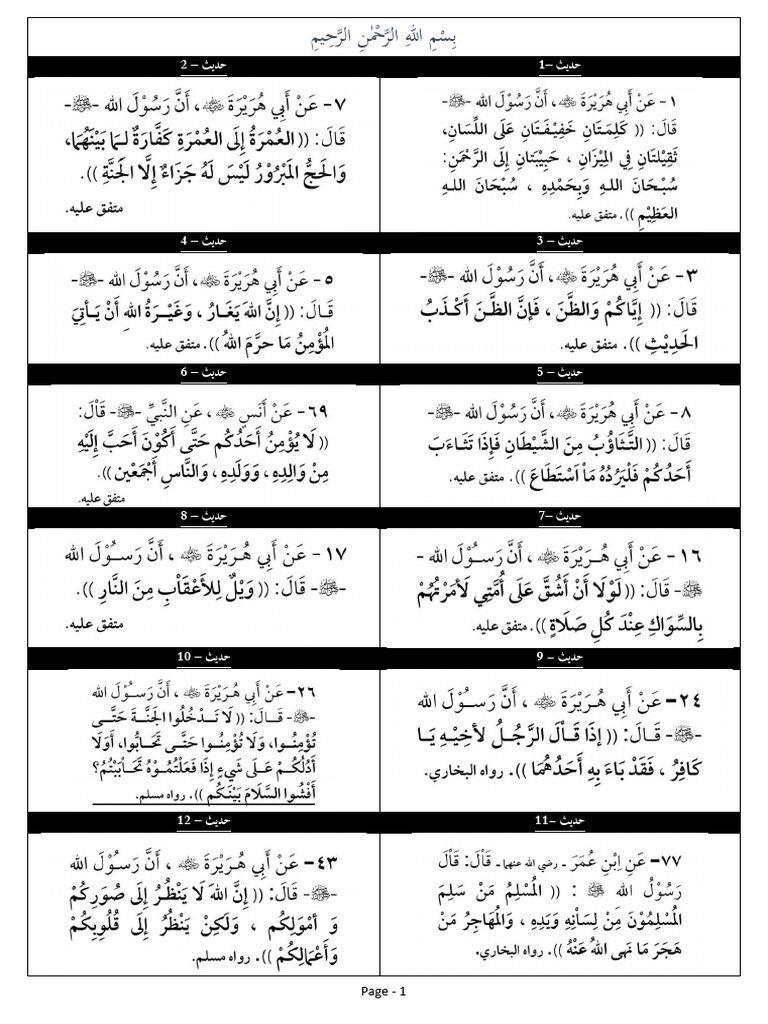 بِسْمِ اللهِ الرَّحْمٰنِ الرَّحِيمِ
حديث –1
١- عَنْ أَبِي هُرَيْرَةَ ﷺ، أَنَّ رَسُوْلَ الله -ﷺ-
قَالَ: (( كَلِمَتَانِ خَفِيْفَتَانِ عَلَى اللِّسَانِ،
ثَقِيْلَتَانِ فِي المِيْزَانِ ، حَبِيْبَتَانِ إِلَى الرَّحْمَنِ:
سُبْحَانَ اللهِ وَبِحَمْدِهِ ، سُبْحَانَ اللهِ
العَظِيْمِ )). متفق عليه.
حديث – 2
٧- عَنْ أَبِي هُرَيْرَةَ ، أَنَّ رَسُوْلَ الله -ﷺ-
قَالَ: (( العُمْرَةُ إِلَى العُمْرَةِ كَفَّارَةٌ لـمَا بَيْنَهُمَا،
وَالحَجُّ المَبْرُوْرُ لَيْسَ لَهُ جَزَاءٌ إِلَّا الجَنَّةِ )).
متفق عليه.
حديث – 3
٣- عَنْ أَبِي هُرَيْرَةَ ، أَنَّ رَسُوْلَ الله -ﷺ-
قَالَ: (( إِيَّاكُمْ وَالظَّنَ ، فَإِنَّ الظَّنَ أَكْذَبُ
الحَدِيْثِ )). متفق عليه.
حديث – 4
٥- عَنْ أَبِي هُرَيْرَةَ ، أَنَّ رَسُوْلَ الله -ﷺ-
قَالَ: (( إِنَّ اللهَ يَغَارُ ، وَغَيْرَةُ اللهِ أَنْ يَأْتِيَ
المُؤْمِنُ مَا حرَّمَ اللهُ )). متفق عليه.
حديث – 5
٨- عَنْ أَبِي هُرَيْرَةَ ، أَنَّ رَسُوْلَ الله -ﷺ-
قَالَ: (( التَّثَاؤُبُ مِنَ الشَّيْطَانِ فَإِذَا تَثَاءَبَ
أَحَدُكُمْ فَلْيَرُدُهُ مَاْ اَسْتَطَاعَ )). متفق عليه.
حديث – 6
٦٩- عَنْ أَنَسٍ ، عَنِ النَّبِيِّ -ﷺ- قَاْلَ:
(( لَا يُؤْمِنُ أَحَدُكُم حَتَّى أَكُوْنَ أَحَبَّ إِلَيْهِ
مِنْ وَالِدِهِ ، وَوَلَدِهِ ، وَالنَّاسِ أَجْمَعْين )).
متفق عليه.
حديث –7
١٦- عَنْ أَبِي هُرَيْرَةَ ، أَنَّ رَسُوْلَ الله -
ﷺ- قَالَ: (( لَوْلَا أَنْ أَشُقَّ عَلَى أُمَّتِي لَأمَرْتُهُمْ
بِالسِّوَاكِ عِنْدَ كُلِ صَلَاةٍ )). متفق عليه.
حديث – 8
١٧- عَنْ أَبِي هُرَيْرَةَ ، أَنَّ رَسُوْلَ الله
-ﷺ- قَالَ: (( وَيْلٌ لِلأَعْقَاْبِ مِنَ النَّارِ )).
متفق عليه.
حديث – 9
٢٤- عَنْ أَبِي هُرَيْرَةَ ، أَنَّ رَسُوْلَ الله
-ﷺ- قَالَ: (( إِذَا قَاْلَ الرَّجُلُ لأَخِيْهِ يَا
كَافِرُ ، فَقَدْ بَاءَ بِهِ أَحَدُهُمَا )). رواه البخاري.
حديث – 10
٢٦- عَنْ أَبِي هُرَيْرَةَ ، أَنَّ رَسُوْلَ الله
-ﷺ- قَالَ: (( لَا تَدْخُلُوا الجَنَّةَ حَتَّى
تُؤْمِنُوا، وَلَا تُؤْمِنُوا حَتَّى تَحَابُّوا، أَوَلَا
أَدُلُكُمْ عَلَى شَيءٍ إِذَا فَعَلْتُمُوْهُ تَحَاْبَبْتُمْ؟
أَفْشُوا السَّلَامَ بَيْنَكُم )). رواه مسلم.
حديث –11
٧٧- عَنِ اِبْنِ عُمَرَ - رضي الله عنهما- قَاْلَ: قَاْلَ
رَسُوْلُ الله ﷺ : (( المُسْلِمُ مَنْ سَلِمَ
المُسْلِمُوْنَ مِنْ لِسَاْنِهِ وَيَدِهِ ، وَالمُهَاجِرُ مَنْ
هَجَرَ مَا نَهى اللهُ عَنْهُ )). رواه البخاري.
حديث – 12
٤٣- عَنْ أَبِي هُرَيْرَةَ ، أَنَّ رَسُوْلَ الله
-ﷺ- قَالَ: (( إِنَّ اللهَ لَا يَنْظُرُ إِلَى صُوَرِكُمْ
وَ أمْوَلِكُم ، وَلَكِنْ يَنْظُرُ إِلَى قُلُوْبِكُمْ
وَأَعْمَالِكُمْ )). رواه مسلم.
Page - 1